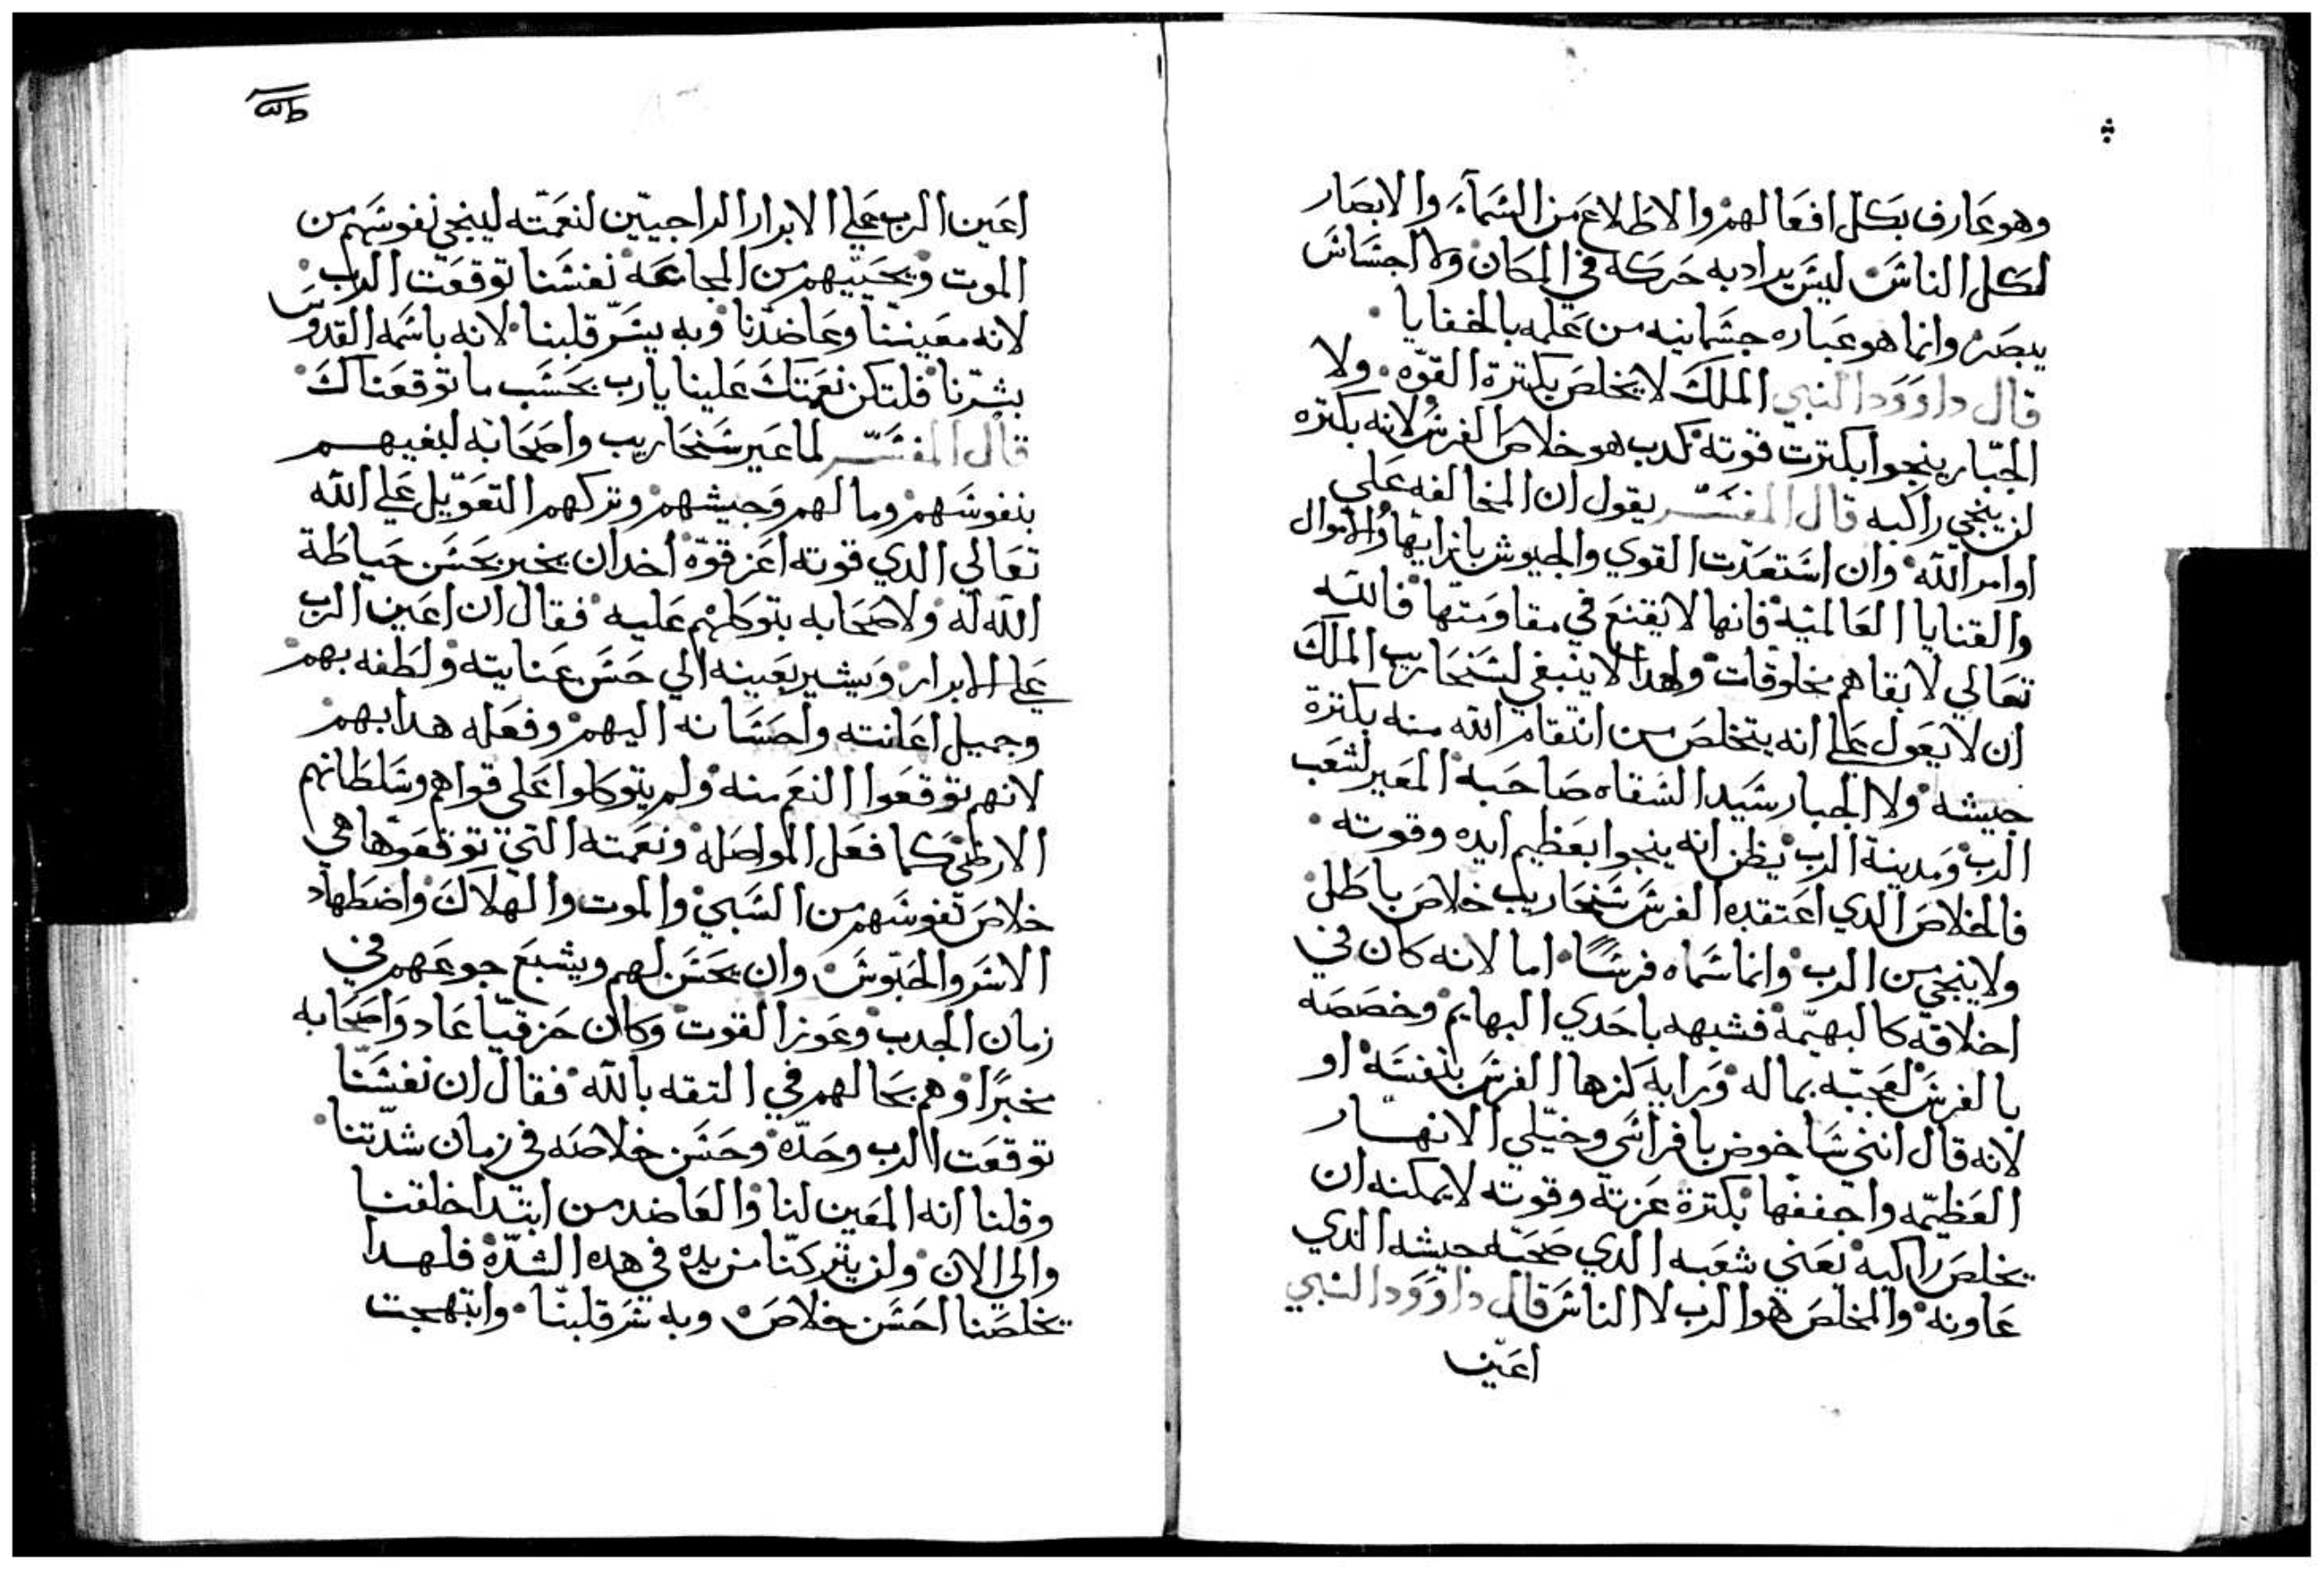 وهو عارف بكل افعالهم والاطلاع من السماء والابصار
لكل الناس ليس يراد به حركه في المكان ولا اجساس
يبصر وانما هو عباره جسمانيه من علمه بالخفايا
قال داوود النبي الملك لا يخلص بكترة القوه ولا
الجبار ينجوا بكترت قوته كدب هو خلاص الفرس لانه بكتره
لن ينجي راكبه قال المفسر يقول ان المخالفه علي
اوامر الله وان استعدت القوي والجيوش بازايها والاموال
والقنايا العالميه فانها لا يقنع في مقاومتها فالله
تعالي لا بقاهم مخلوقات ولهدا لا ينبغي لسنحاريب الملك
ان لا يعول علي انه يتخلص من انتقام الله منه بكترة
جيشه ولا الجبار سيد السقاه صاحبه المعير لشعب
الرب ومدينة الرب يظن انه ينجوا بعظيم ايده وقوته
فالخلاص الدي اعتقده الفرس سنحاريب خلاص باطل
ولا ينجي من الرب وانما سماه فرسا اما لانه كان في
اخلاقه كالبهيمه فشبهه باحدي البهايم وخصصه
بالفرس لعجبه بماله ورايه كزها الفرس بنفسه او
لانه قال انني ساخوض بافراسي وخيلي الانهار
العظيمه واجففها بكترة عزته وقوته لا يمكنه ان
يخلص راكبه يعني شعبه الدي صحبته جيشه الدي
عاونه والمخلص هو الرب لا الناس قال داوود النبي
اعين
ط
اعين الرب علي الابرار الراجيين لنعمته لينجي نفوسهم من
الموت ويحييهم من المجاعه نفسنا توقعت الرب
لانه معيننا وعاضدنا وبه يسر قلبنا لانه باسمه القدوس
بشرنا فلتكن نعمتك علينا يارب بحسب ما توقعناك
قال المفسر لما عير سنحاريب واصحابه لبغيهم
بنفوسهم ومالهم وجيشهم وتركهم التعويل علي الله
تعالي الدي قوته اعز قوه اخد ان يخبر بحسن حياطة
الله له ولاصحابه بتوكلهم عليه فقال ان اعين الرب
علي الابرار ويشير بعينه الي حسن عنايته ولطفه بهم
وجميل اعانته واحسانه اليهم وفعله هدا بهم
لانهم توقعوا النعم منه ولم يتوكلوا علي قواهم وسلطانهم
الارضي كما فعل المواصله ونعمته التي توقعوها هي
خلاص نفوسهم من السبي والموت والهلاك واضطهاد
الاسر والحبوس وان يحسن لهم ويشبع جوعهم في
زمان الجدب وعوز القوت وكان حزقيا عاد واصحابه
مخبرا وهم بحالهم في التقه بالله فقال ان نفسنا
توقعت الرب وحده وحسن خلاصه في زمان شدتنا
وقلنا انه المعين لنا والعاضد من ابتدا خلقتنا
والي الان ولن يتركنا من يده في هده الشده فلهدا
يخلصنا احسن خلاص وبه سر قلبنا وابتهجت